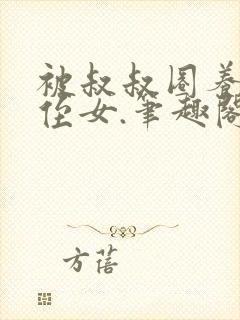 被叔叔圈养
侄女.笔趣阁
方蓓